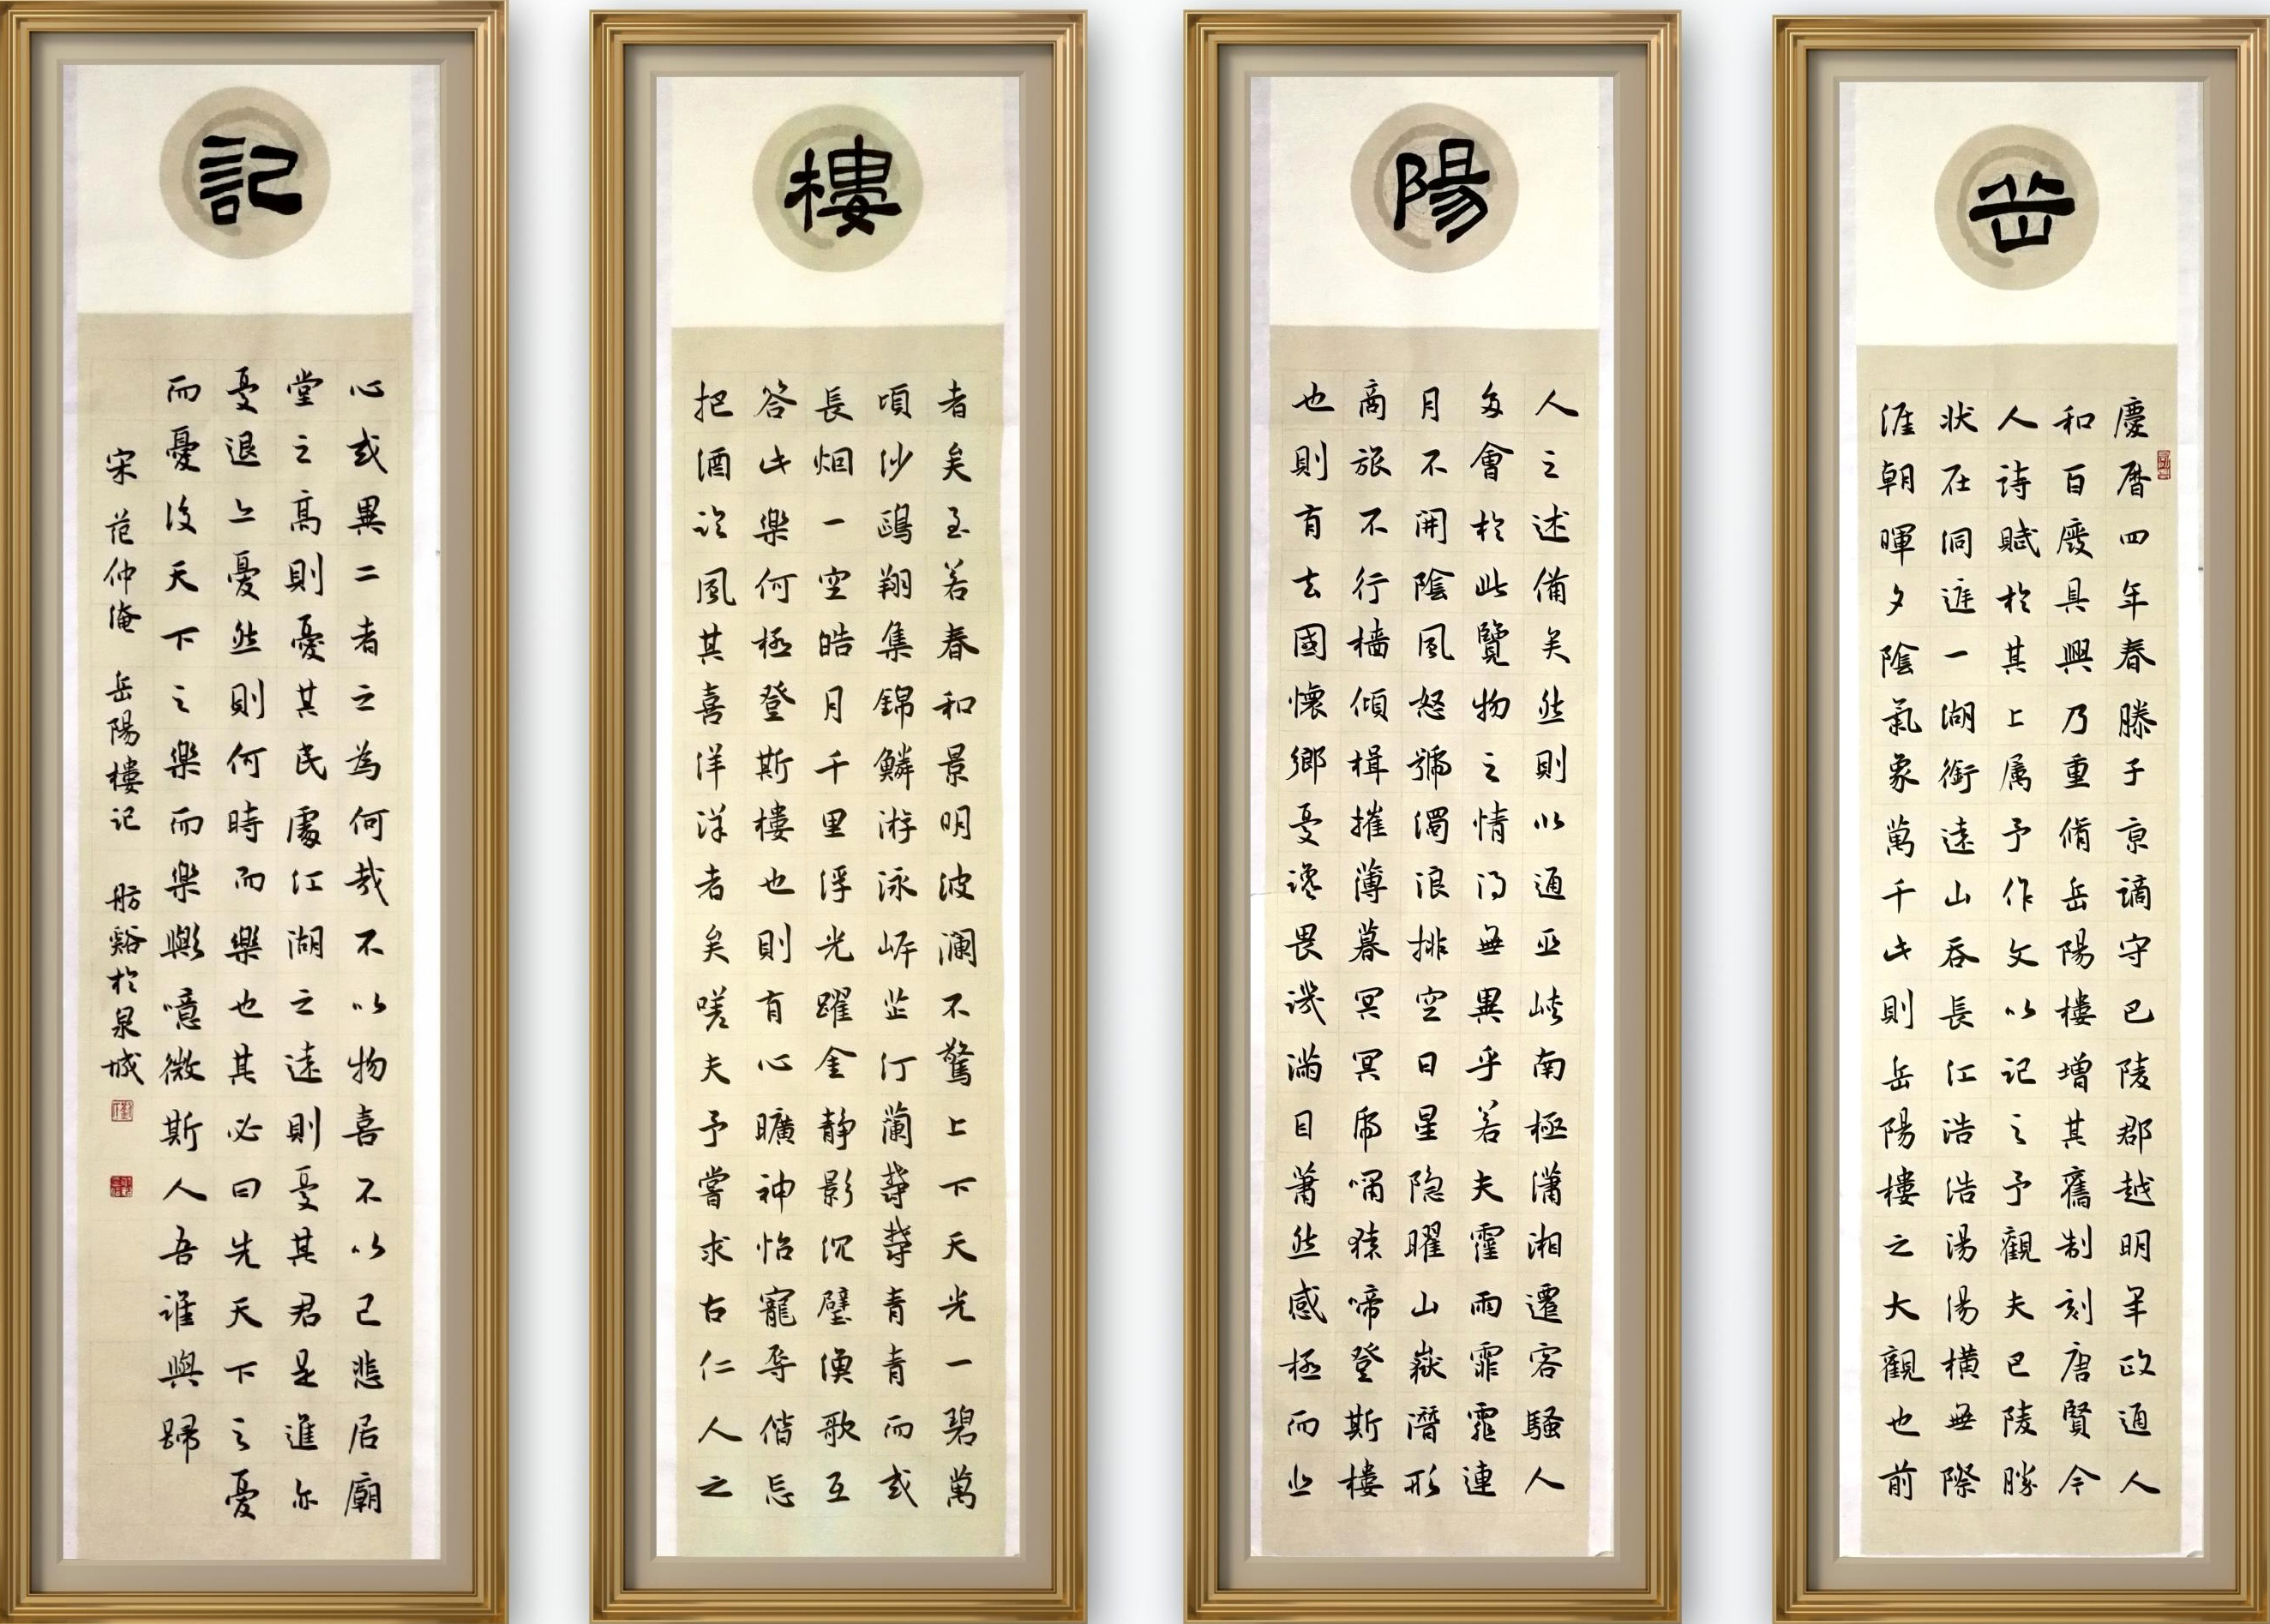 岳
慶曆四年春滕子京謫守巴陵郡越明年政通人
和百廢具興乃重脩岳陽樓增其舊制刻唐賢今
人詩賦於其上属予作文以記之予觀夫巴陵勝
状在洞庭一湖銜遠山吞長江浩浩湯湯横無際
涯朝暉夕陰氣象萬千此則岳陽樓之大觀也前
陽
人之述備矣然則以通巫峽南極瀟湘遷客騷人
多會於此覽物之情得無異乎若夫霪雨霏霏連
月不開陰風怒號濁浪排空日星隐曜山嶽潛形
商旅不行檣傾楫摧薄暮冥冥虎嘯猿啼登斯樓
也則有去國懷鄉憂讒畏譏滿目蕭然感極而悲
樓
者矣至若春和景明波瀾不驚上下天光一碧萬
頃沙鷗翔集錦鱗游泳岸芷汀蘭鬱鬱青青而或
長烟一空皓月千里浮光躍金静影沉璧漁歌互
答此樂何極登斯樓也則有心曠神怡寵辱偕忘
把酒臨風其喜洋洋者矣嗟夫予嘗求古仁人之
記
心或異二者之為何哉不以物喜不以己悲居廟
堂之高則憂其民處江湖之遠則憂其君是進亦
憂退亦憂然則何時而樂也其必曰先天下之憂
而憂後天下之樂而樂歟噫微斯人吾誰與歸
宋范仲淹 岳陽樓記 舫谿於泉城